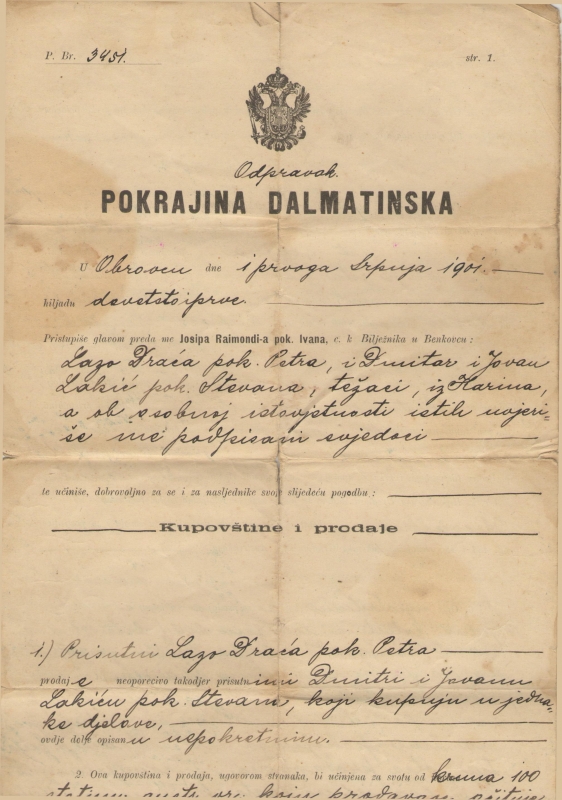 P. Br. 3451.
str. 1.
Odpravak.
POKRAJINA DALMATINSKA
U Obrovcu dne 1 prvoga Srpnja 1901.
hiljadu devetstoiprve.
Pristupiše glavom preda me Josipa Raimondi-a pok. Ivana, c. k Bilježnika u Benkovcu :
Lazo Drača pok. Petra, i Dmitar i Jovan
Lakić pok. Stevana, težaci, iz Karina,
a ob osobnoj istovjetnosti istih uvjeri-
še me podpisani svjedoci
te učiniše, dobrovoljno za se i za nasljednike svoje slijedeću pogodbu :
Kupovštine i prodaje
1.) Prisutni Lazo Drača pok. Petra
prodaje neoporecivo takodjer prisutnimi Dmitri i Jovanu
Lakiću pok. Stevana, koji kupuju u jedna-
ke djelove,
ovdje dolje opisanu nepokretninu.
2. Ova kupovština i prodaja, ugovorom stranaka, bi učinjena za svotu od kruna 100